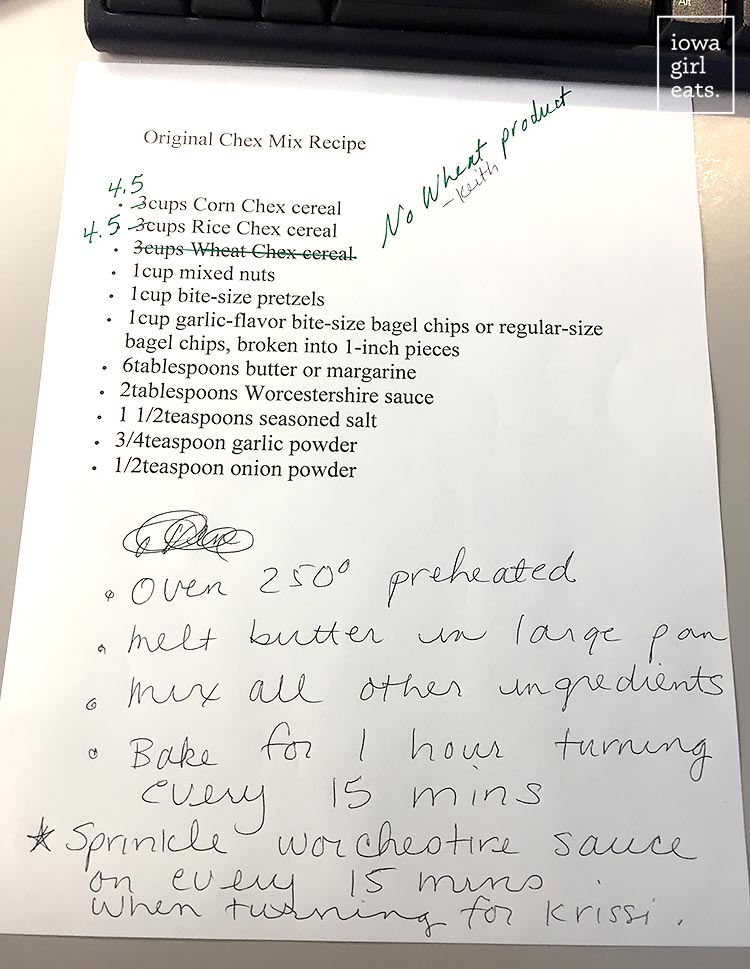 Alt
iowa
girl
eats.
Original Chex Mix Recipe
No Wheat product
-Keith
4.5
• 3cups Corn Chex cereal
4.5 • 3cups Rice Chex cereal
• 3cups Wheat Chex cereal
• 1cup mixed nuts
• 1cup bite-size pretzels
• 1cup garlic-flavor bite-size bagel chips or regular-size
bagel chips, broken into 1-inch pieces
• 6tablespoons butter or margarine
• 2tablespoons Worcestershire sauce
• 1 1/2teaspoons seasoned salt
• 3/4teaspoon garlic powder
• 1/2teaspoon onion powder
• Oven 250° preheated
• melt butter in large pan
• mix all other ingredients
• Bake for 1 hour turning
every 15 mins
★ Sprinkle worchestire sauce
on every 15 mins
when turning for Krissi.